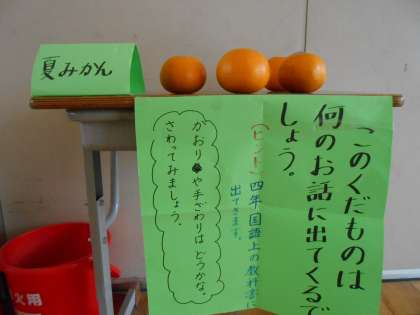 夏みかん
このくだものは
何のお話に出てくるで
しょう。
(ヒント) 四年国語上の教科書に
出てきます。
かおりや手ざわりはどうかな。
さわってみましょう。
火用